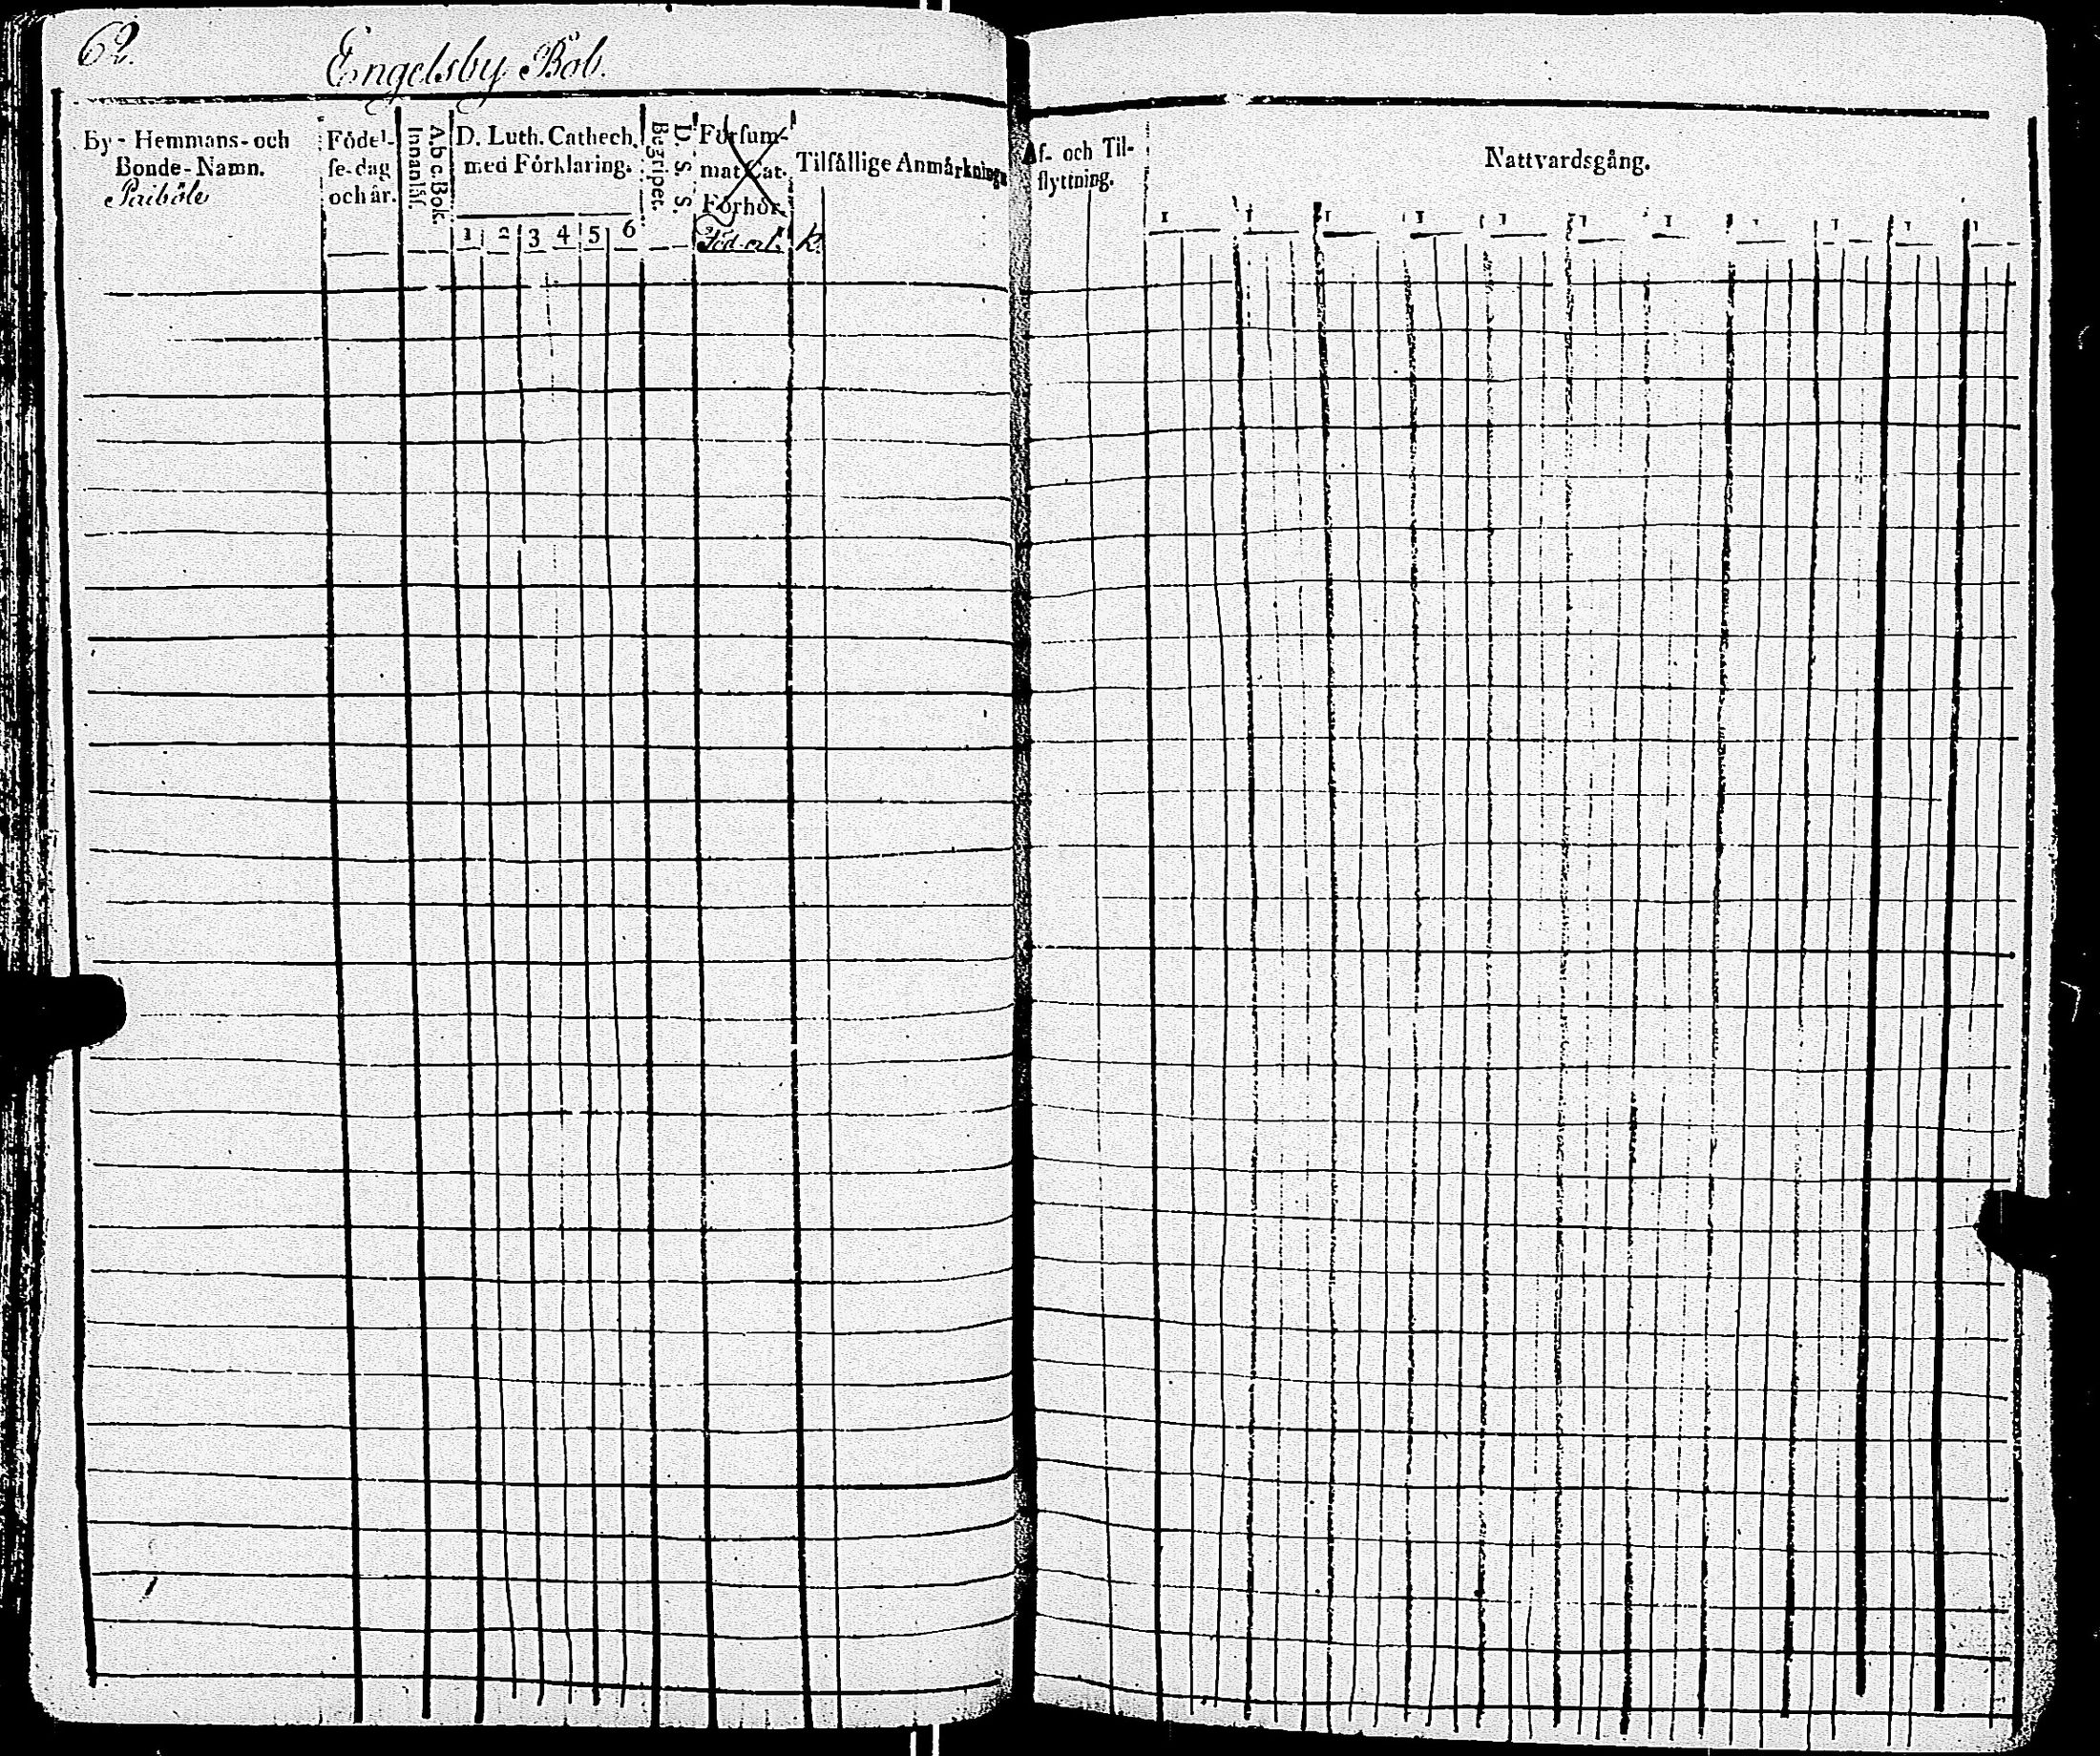 62.
Engelsby Bol.
By- Hemmans- och
Bonde-Namn.
Paiböle
Födel-
se-dag
och år.
A.b c.Bok.
Innanläs.
D. Luth. Cathech.
med Förklaring.
1 2 3 4 5 6
D. S. S.
Begriper.
Försum-
mat Cat.
Förhör.
Föd. ort.
K.
Tilfällige Anmärkningar
Af- och Til-
flyttning.
Nattvardsgång.
1 1 1 1 1 1 1 1 1 1 1